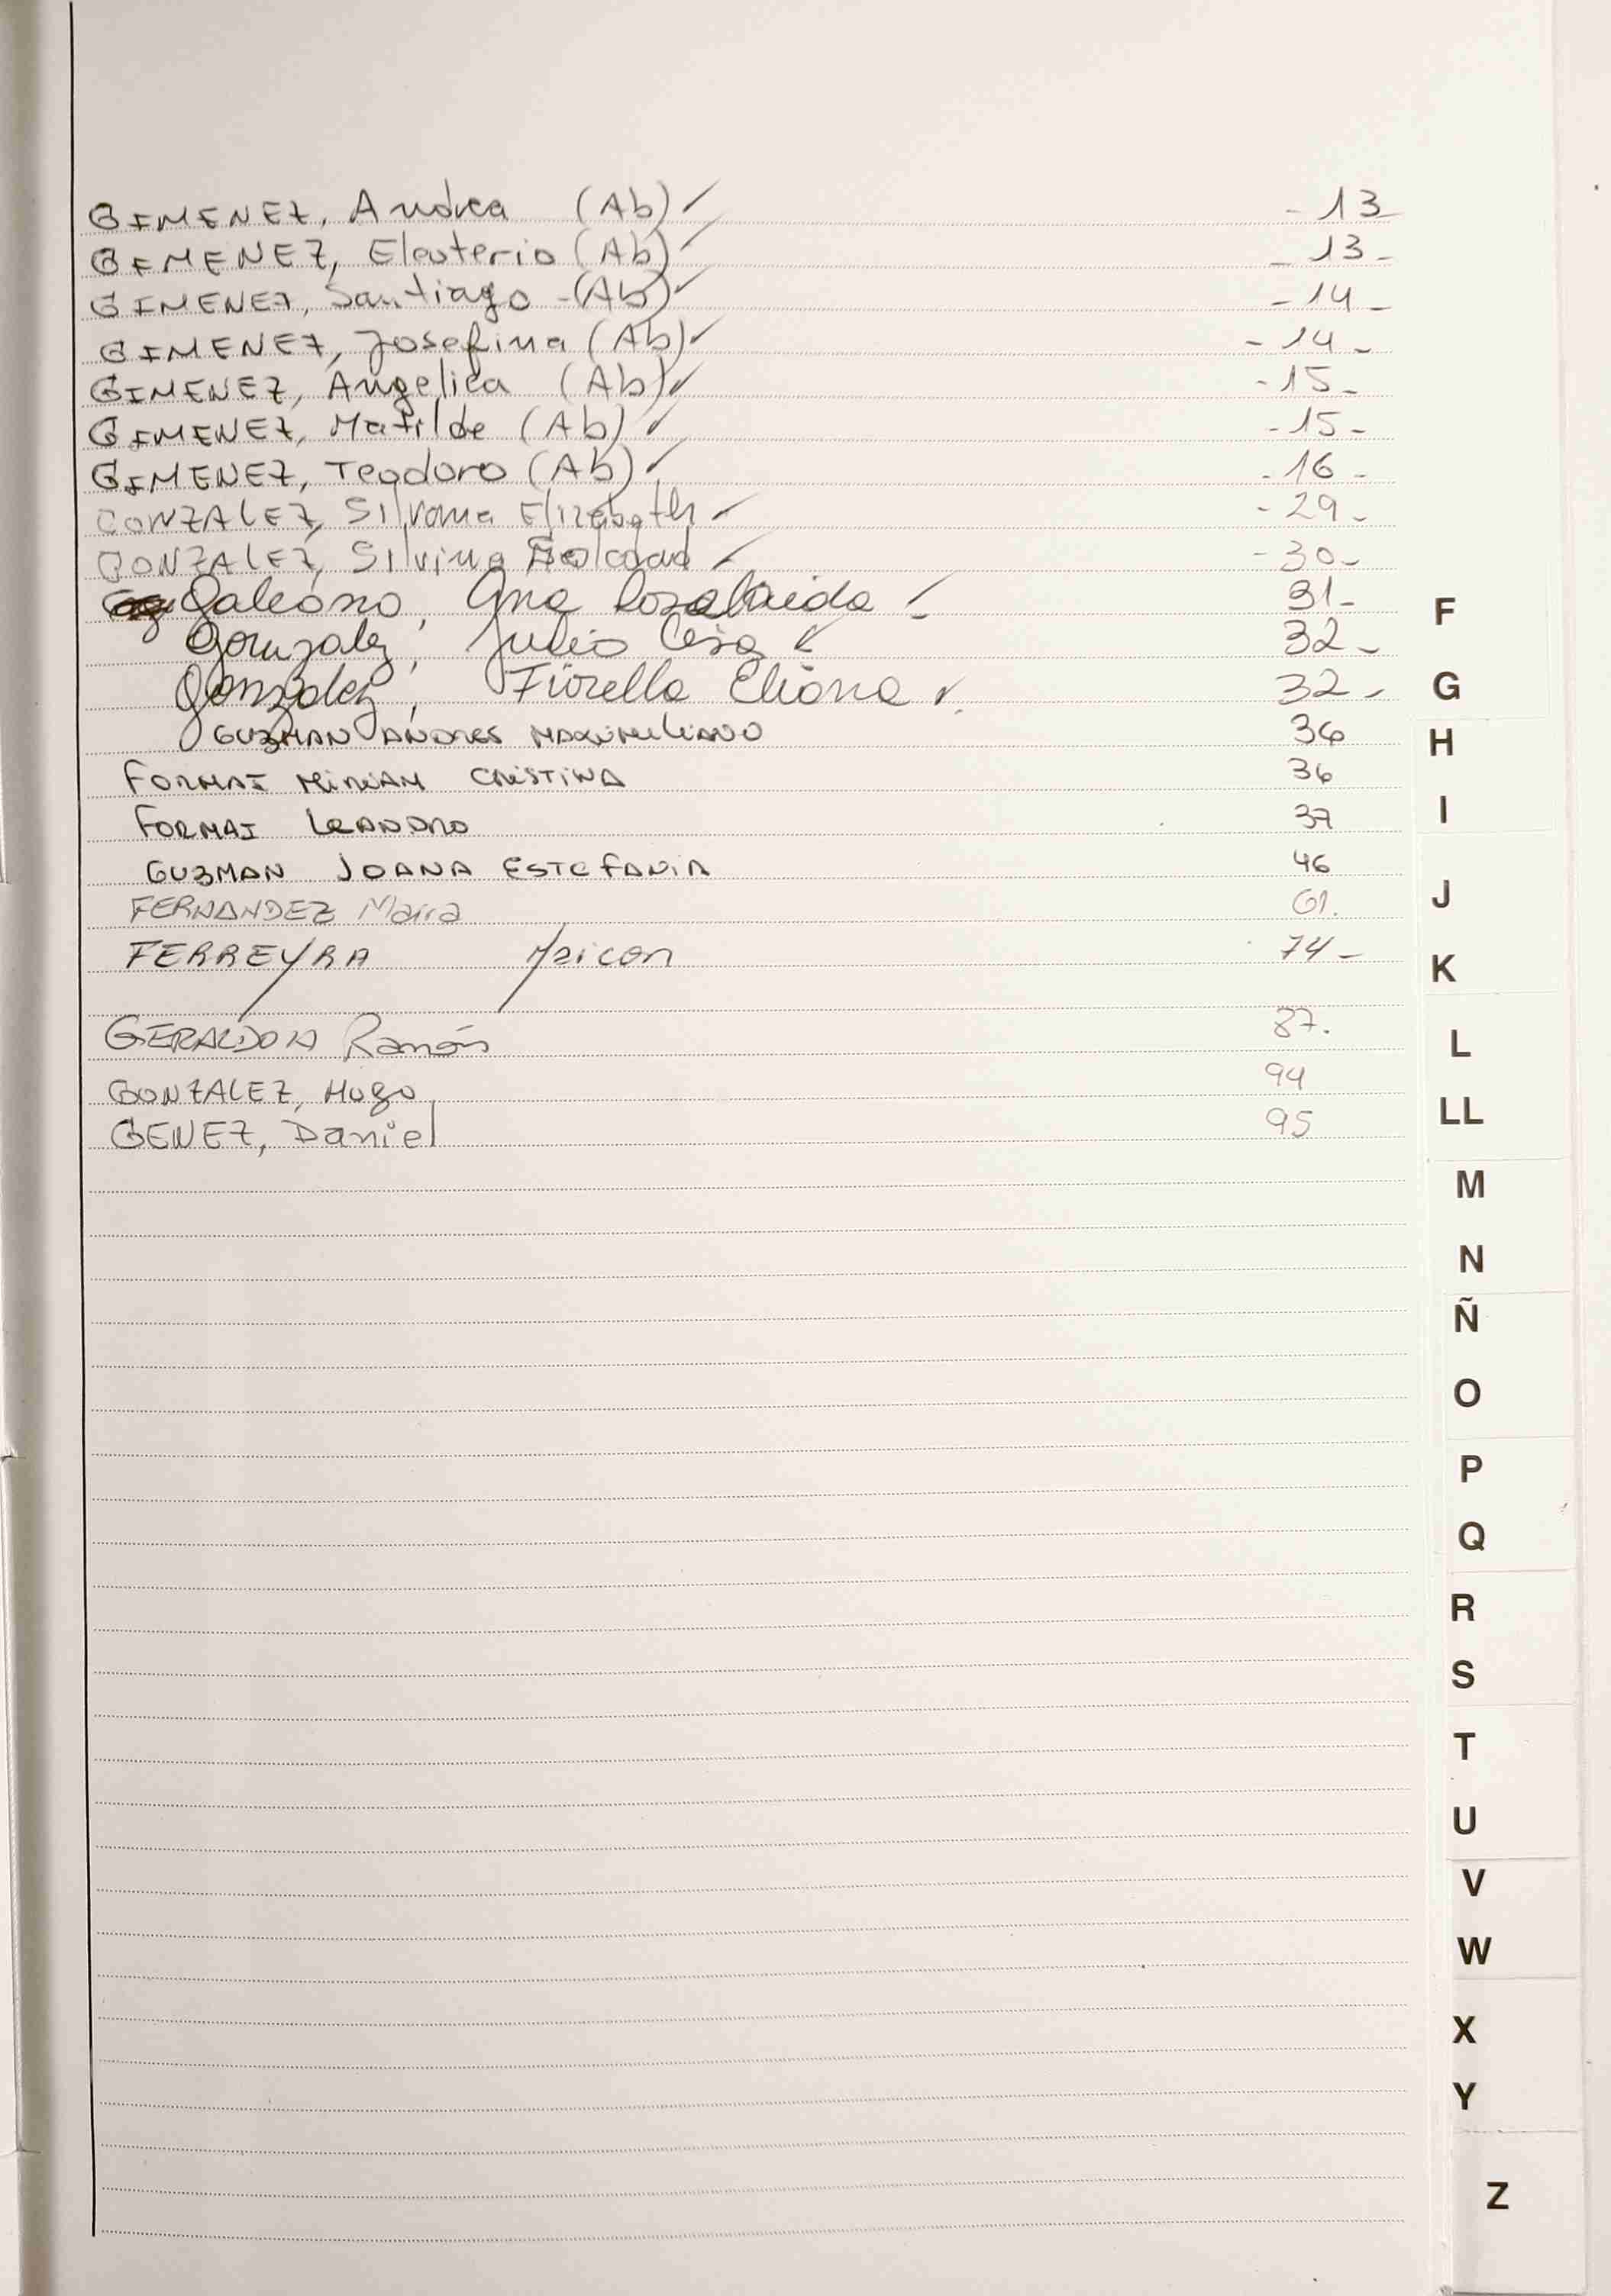 GIMENEZ, Andrea (Ab) ✓ - 13
GIMENEZ, Eleuterio (Ab) ✓ - 13 -
GIMENEZ, Santiago - (Ab) ✓ - 14 -
GIMENEZ, Josefina (Ab) ✓ - 14 -
GIMENEZ, Angelica (Ab) ✓ - 15 -
GIMENEZ, Matilde (Ab) ✓ - 15 -
GIMENEZ, Teodoro (Ab) ✓ - 16 -
GONZALEZ, Silvana Elizabeth ✓ - 29 -
GONZALEZ, Silvina Soledad ✓ - 30 -
Galeano, Ana 31 -
Gonzalez, Julio ✓ 32 -
Gonzalez, Fiorella Eliana ✓ 32 -
GUZMAN ANDRES MAXIMILIANO 36
FORMAI MIRIAM CRISTINA 36
FORMAI LEANDRO 37
GUZMAN JOANA ESTEFANIA 46
FERNANDEZ Maira 61.
FERREYRA Maicon 74 -
Ramón 87.
GONZALEZ, Hugo 94
GENEZ, Daniel 95
F
G
H
I
J
K
L
LL
M
N
Ñ
O
P
Q
R
S
T
U
V
W
X
Y
Z